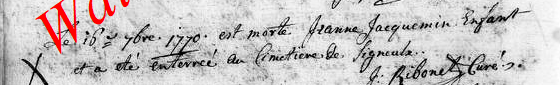 Wat
Le 16e 7bre. 1770. est morte Jeanne Jacquemin Enfant
et a été enterrée au Cimetière de Signeulx..
J. Ribonet Curé.